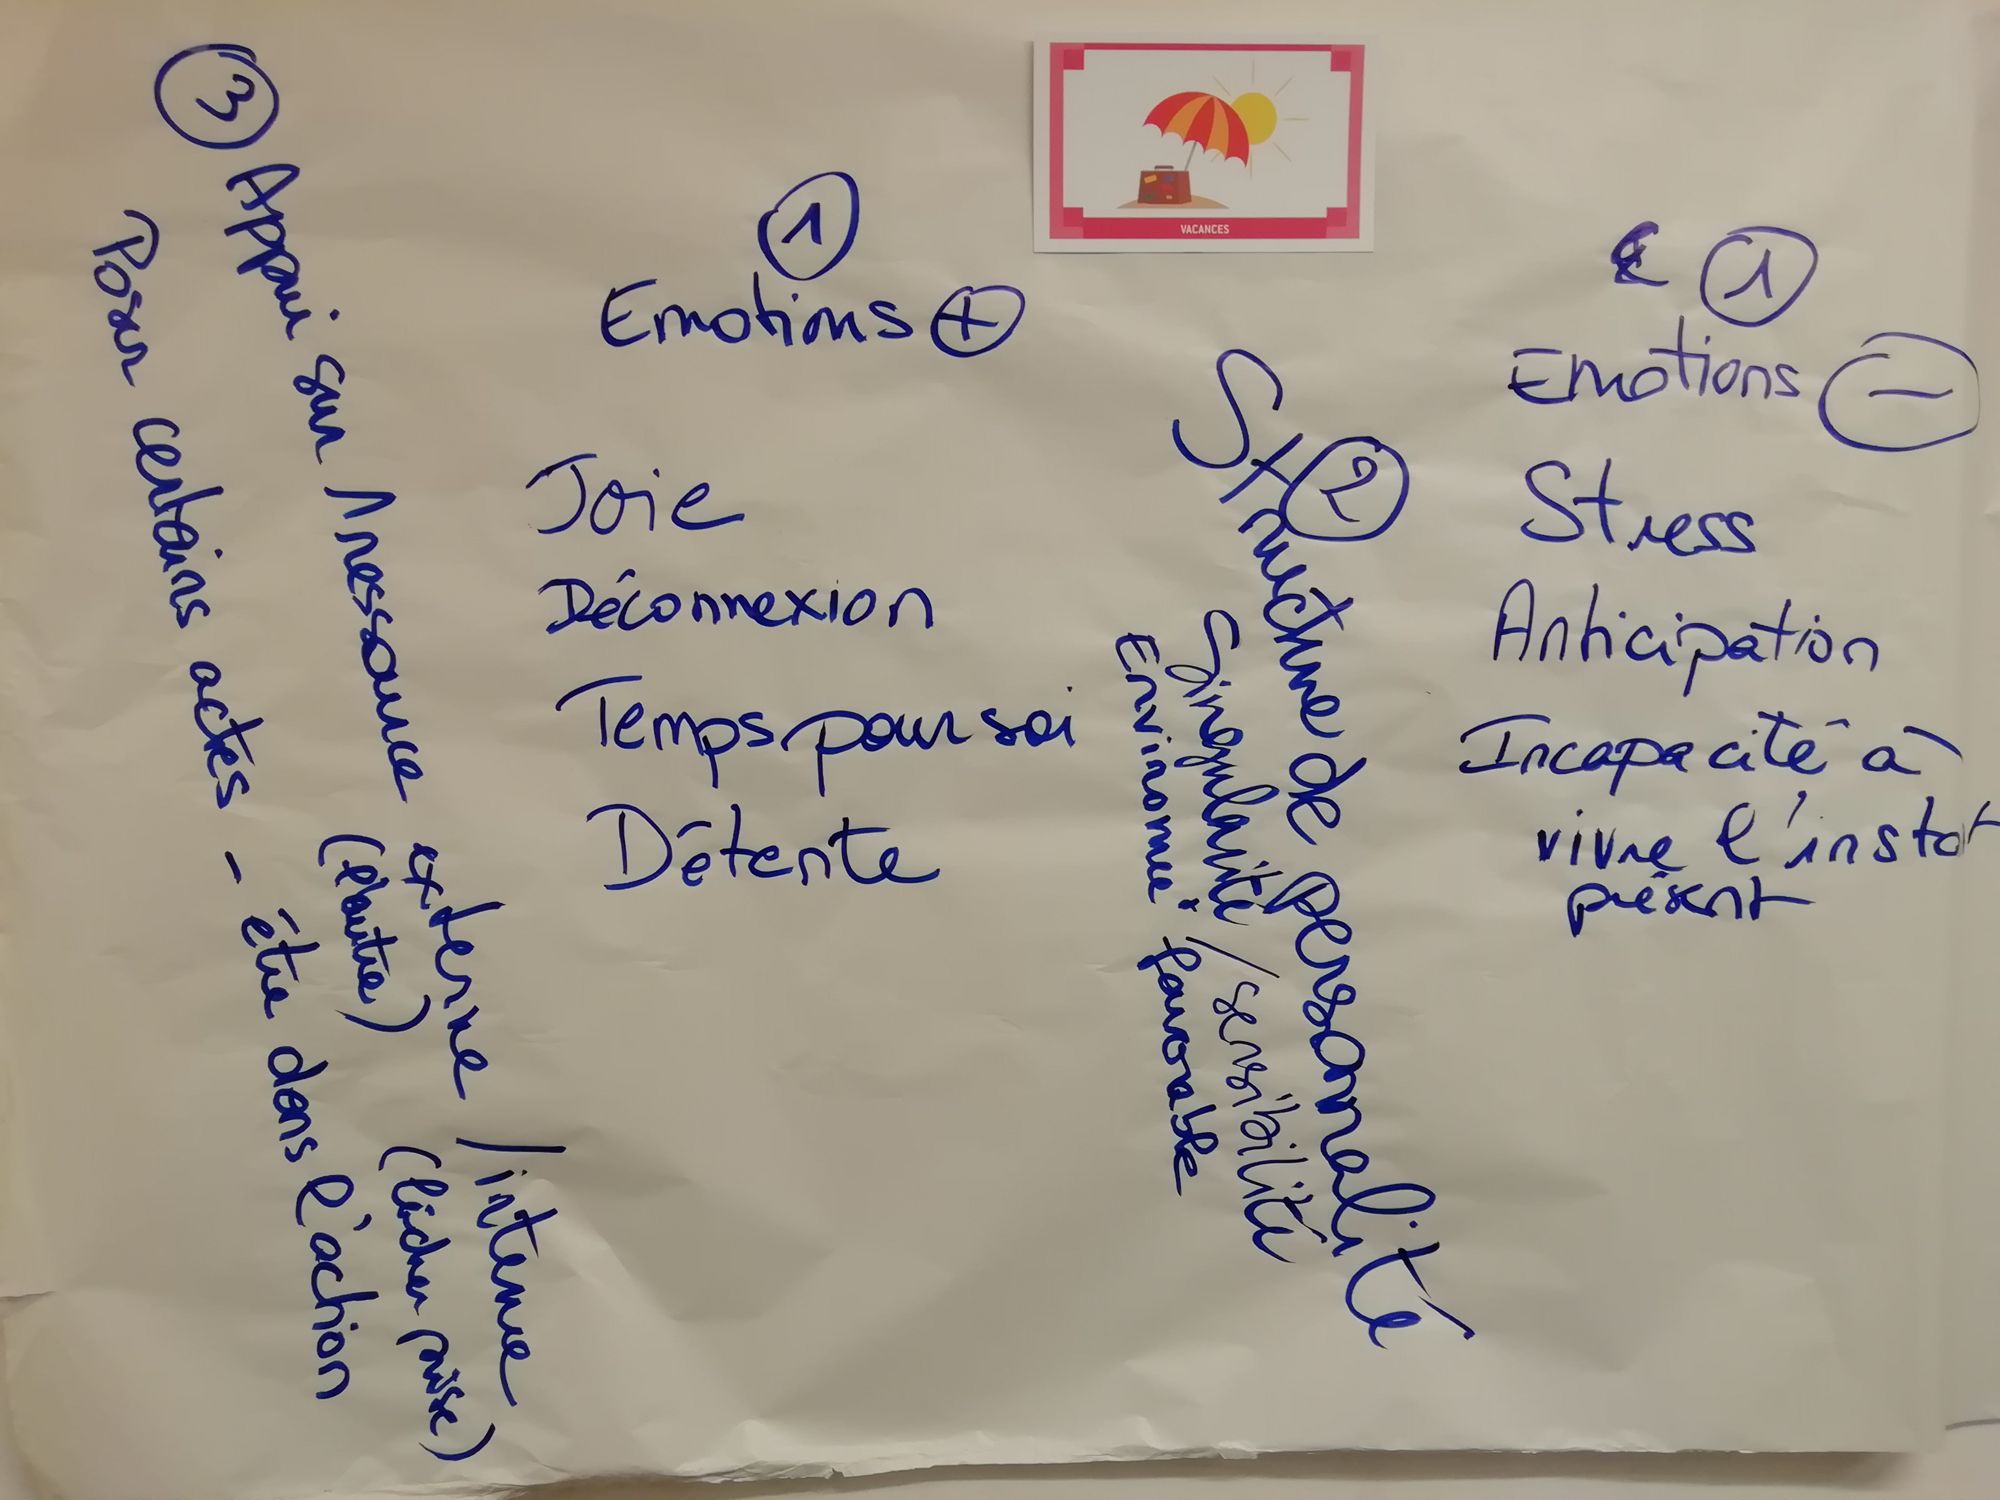 VACANCES
1
Emotions +
Joie
Déconnexion
Temps pour soi
Détente
1
Emotions -
Stress
Anticipation
Incapacité à
vivre l'instat
présent
2
Structure de personnalité
Singularité / sensibilité
Environne^t favorable
3
Appui sur 1 ressource externe / interne
(l'autre) (lâcher prise)
Poser certains actes - être dans l'action